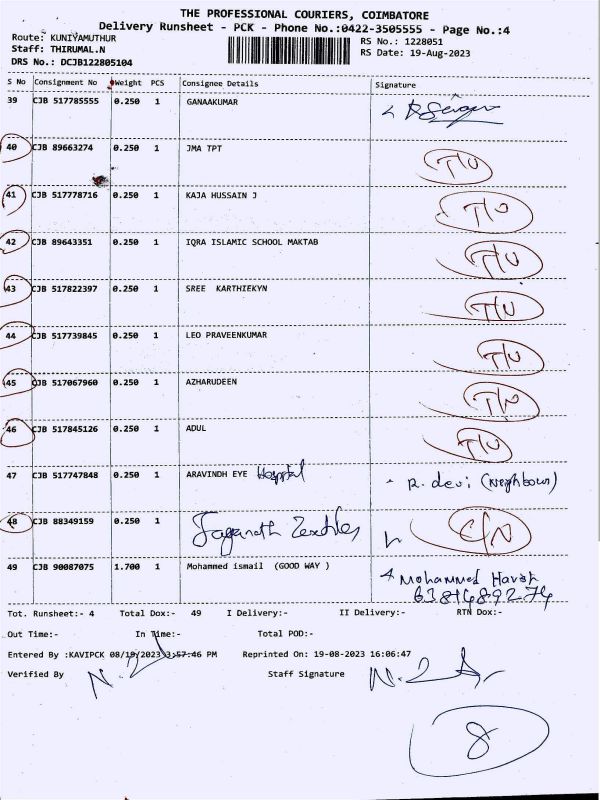 THE PROFESSIONAL COURIERS, COIMBATORE
Delivery Runsheet - PCK - Phone No.:0422-3505555 - Page No.:4
Route: KUNIYAMUTHUR RS No.: 1228051
Staff: THIRUMAL.N RS Date: 19-Aug-2023
DRS No.: DCJB122805104
S No Consignment No Weight PCS Consignee Details Signature
39 CJB 517785555 0.250 1 GANAAKUMAR
40 CJB 89663274 0.250 1 JMA TPT T/U
41 CJB 517778716 0.250 1 KAJA HUSSAIN J T/U
42 CJB 89643351 0.250 1 IQRA ISLAMIC SCHOOL MAKTAB T/U
43 CJB 517822397 0.250 1 SREE KARTHIEKYN T/U
44 CJB 517739845 0.250 1 LEO PRAVEENKUMAR T/U
45 CJB 517067960 0.250 1 AZHARUDEEN T/U
46 CJB 517845126 0.250 1 ADUL T/U
47 CJB 517747848 0.250 1 ARAVINDH EYE Hospital R. devi (Neighbour)
48 CJB 88349159 0.250 1 Jaganath Textiles
49 CJB 90087075 1.700 1 Mohammed ismail (GOOD WAY ) Mohammed
Tot. Runsheet:- 4 Total Dox:- 49 I Delivery:- II Delivery:- RTN Dox:-
Out Time:- In Time:- Total POD:-
Entered By :KAVIPCK 08/19/2023 3:57:46 PM Reprinted On: 19-08-2023 16:06:47
Verified By Staff Signature
8